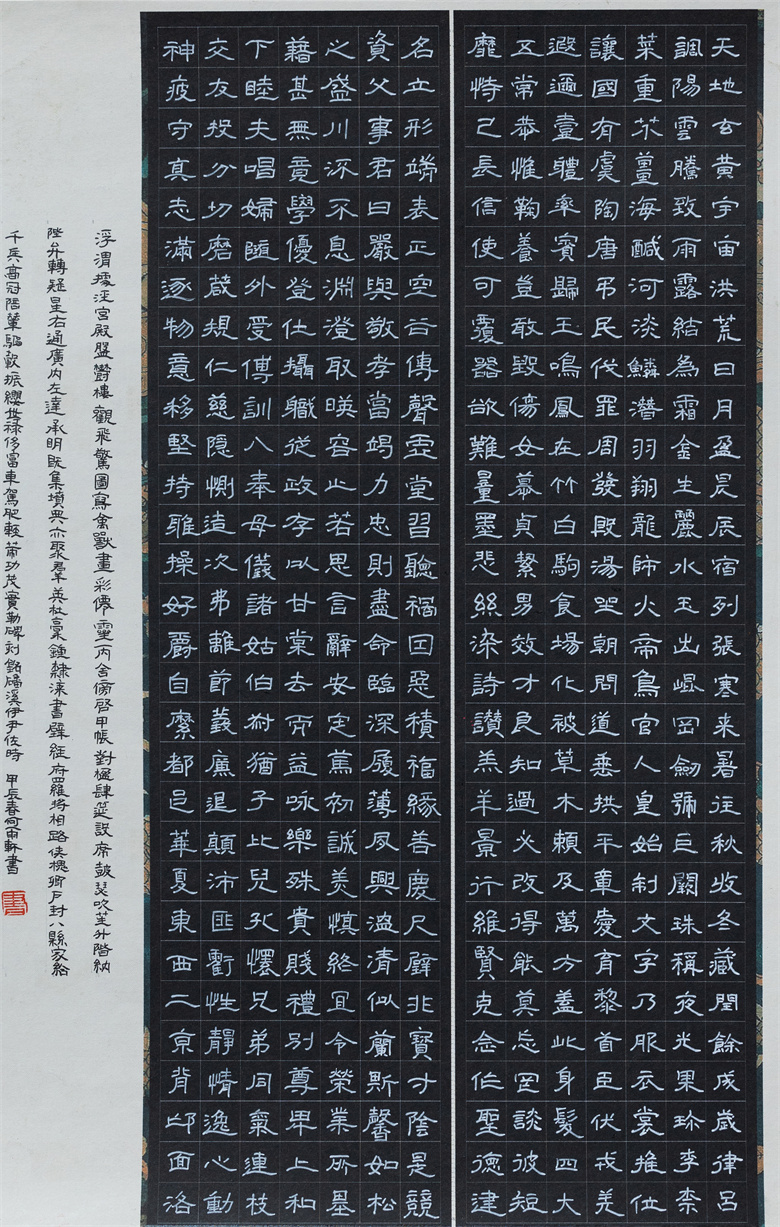 天地玄黃宇宙洪荒日月盈昃辰宿列張寒来暑往秋收冬藏閏餘成歲律呂
調陽雲騰致雨露結為霜金生麗水玉出崐岡劒號巨闕珠稱夜光果珍李柰
菜重芥薑海醎河淡鱗潛羽翔龍師火帝鳥官人皇始制文字乃服衣裳推位
讓國有虞陶唐弔民伐罪周發殷湯坐朝問道垂拱平章愛育黎首臣伏戎羌
遐邇壹體率賓歸王鳴鳳在竹白駒食場化被草木賴及萬方蓋此身髮四大
五常恭惟鞠養豈敢毀傷女慕貞絜男效才良知過必改得能莫忘罔談彼短
靡恃己長信使可覆器欲難量墨悲絲染詩讚羔羊景行維賢克念作聖德建
名立形端表正空谷傳聲虛堂習聽禍因惡積福緣善慶尺璧非寶寸陰是競
資父事君曰嚴與敬孝當竭力忠則盡命臨深履薄夙興溫凊似蘭斯馨如松
之盛川流不息淵澄取暎容止若思言辭安定篤初誠美慎終宜令榮業所基
藉甚無竟學優登仕攝職從政存以甘棠去而益詠樂殊貴賤禮別尊卑上和
下睦夫唱婦隨外受傅訓入奉母儀諸姑伯叔猶子比兒孔懷兄弟同氣連枝
交友投分切磨箴規仁慈隱惻造次弗離節義廉退顛沛匪虧性靜情逸心動
神疲守真志滿逐物意移堅持雅操好爵自縻都邑華夏東西二京背邙面洛
浮渭據涇宮殿盤鬱樓觀飛驚圖寫禽獸畫彩僊靈丙舍傍啓甲帳對楹肆筵設席鼓瑟吹笙升階納
陛弁轉疑星右通廣內左達承明既集墳典亦聚羣英杜稾鍾隸漆書壁經府羅將相路俠槐卿戶封八縣家給
千兵高冠陪輦驅轂振纓世祿侈富車駕肥輕策功茂實勒碑刻銘磻溪伊尹佐時 甲辰春雨軒書